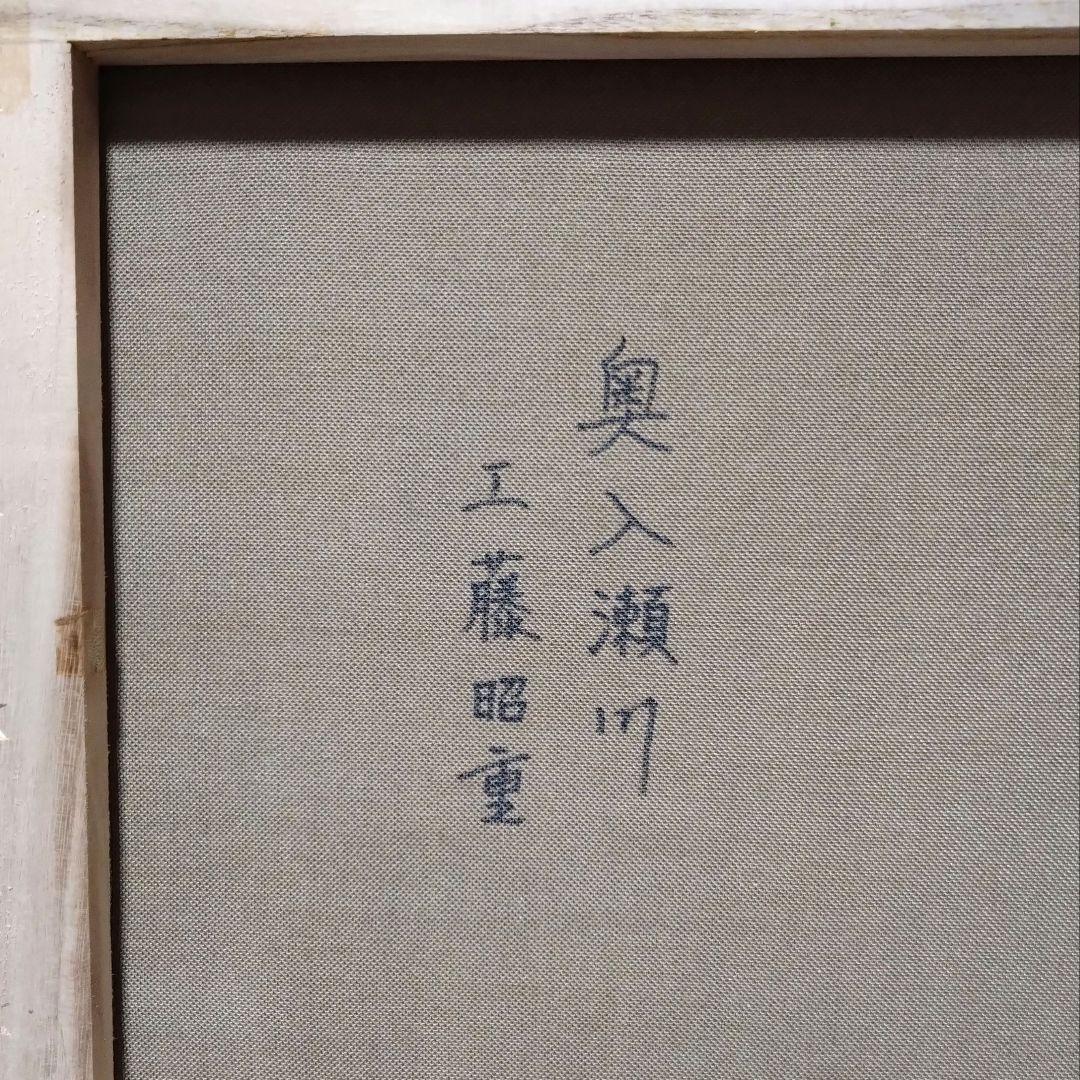 奥入瀬川
工藤昭重